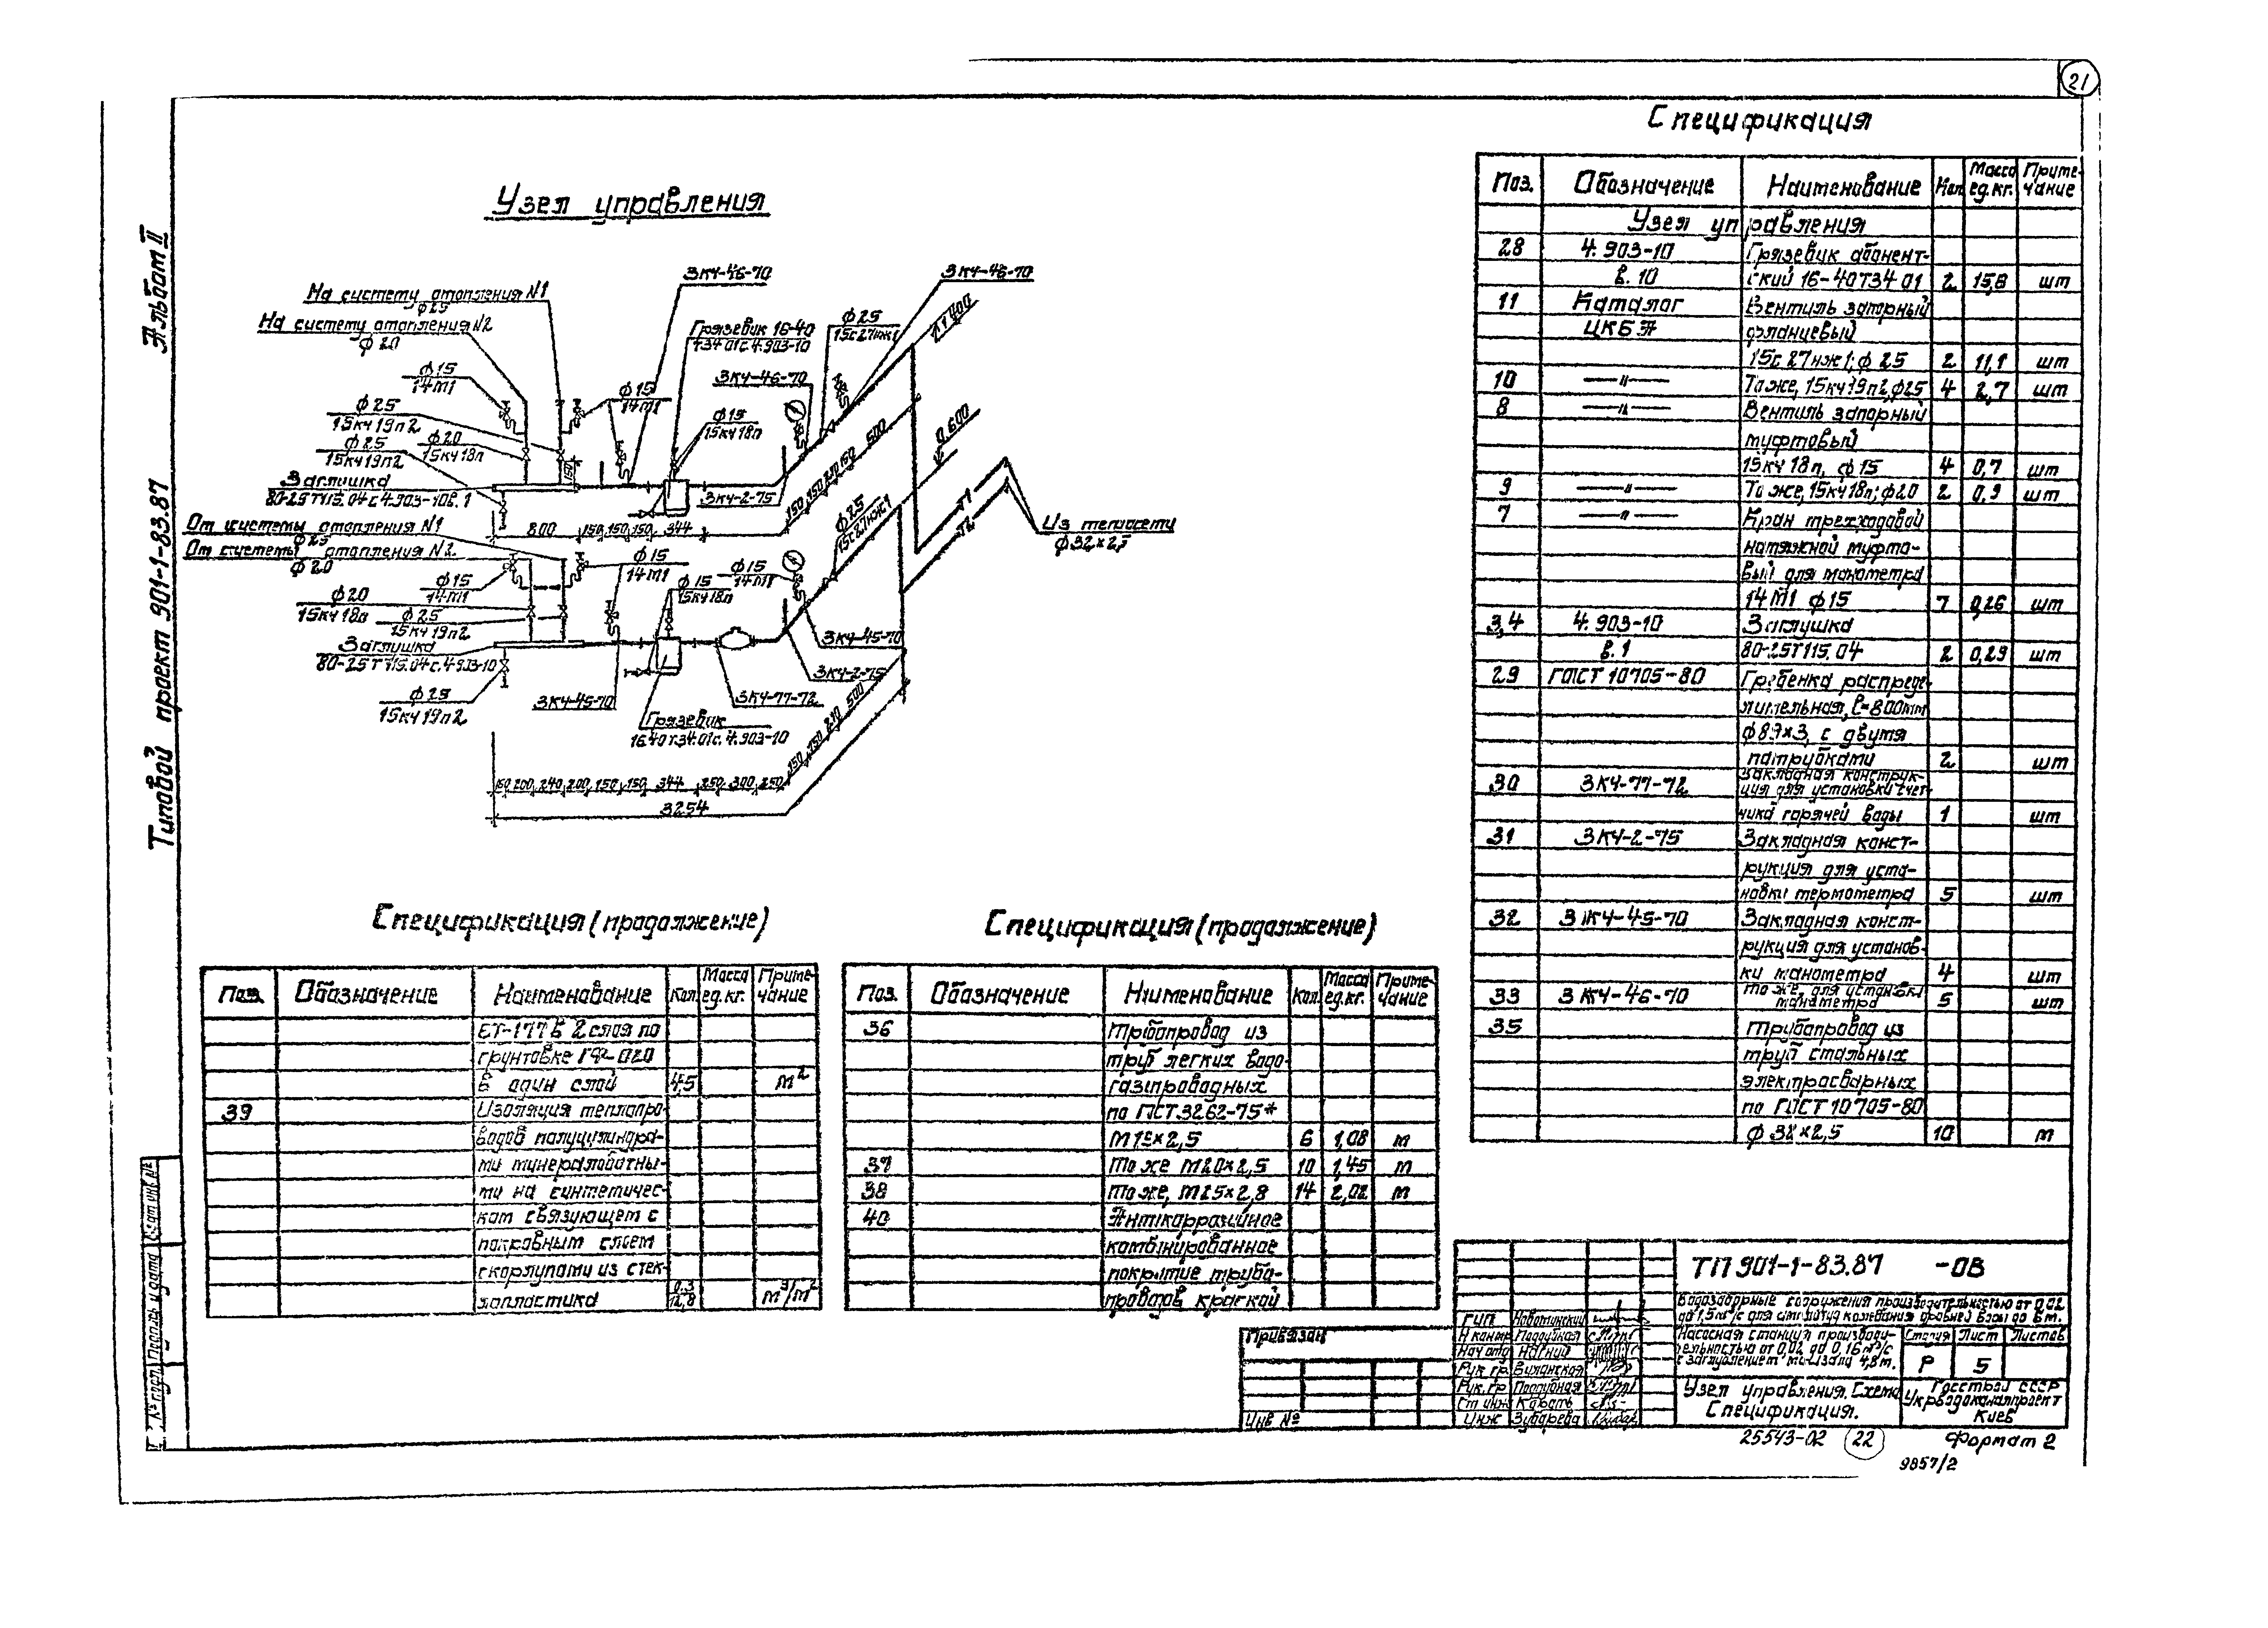 21
Альбом II
Типовой проект 901-1-83.87
Узел управления
На систему отопления N1
ф25
На систему отопления N2
ф20
3КЧ-46-70
3КЧ-46-70
Грязевик 16-40
Т34 01 с. 4.903-10
ф25
15с27нж1
1.400
3КЧ-46-70
ф15
14М1
ф15
14М1
ф25
15кч19п2
ф20
15кч18п
ф15
15кч18п
ф25
15кч19п2
0.600
Заглушка
80-25Т115.04 с 4.903-10в.1
3КЧ-2-75
800
150 150 150 344
150 150 210 150 500
ф25
15с27нж1
Т1
Т2
Из теплосети
ф32×2,5
От системы отопления N1
ф25
От системы отопления N2
ф20
ф15
14М1
ф15
14М1
ф15
14М1
ф15
15кч18п
ф20
15кч18п
ф25
15кч19п2
Заглушка
80-25Т115.04 с. 4.903-10
ф25
15кч19п2
3КЧ-45-70
3КЧ-45-70
3КЧ-2-75
3КЧ-77-72
Грязевик
16.40т.34.01с.4.903-10
150 150 210 500
150 200 240 200 150 150 344 250 300 250
3254
Спецификация
Поз. Обозначение Наименование Кол Масса ед.кг. Приме-чание
Узел управления
28 4.903-10 Грязевик абонент-
в.10 ский 16-40Т34 01 2 15,8 шт
11 Каталог Вентиль запорный
ЦКБА фланцевый
15с27нж1; ф25 2 11,1 шт
10 —"— То же, 15кч19п2, ф25 4 2,7 шт
8 —"— Вентиль запорный
муфтовый
15кч18п, ф15 4 0,7 шт
9 —"— То же, 15кч18п; ф20 2 0,9 шт
7 —"— Кран трехходовой
натяжной муфто-
вый для манометра
14М1 ф15 7 0,26 шт
3,4 4.903-10 Заглушка
в.1 80-25Т115.04 2 0,29 шт
29 ГОСТ 10705-80 Гребенка распреде-
лительная, ℓ=800мм
ф89×3, с двумя
патрубками 2 шт
30 3КЧ-77-72 Закладная конструк-
ция для установки счет-
чика горячей воды 1 шт
31 3КЧ-2-75 Закладная конст-
рукция для уста-
новки термометра 5 шт
32 3КЧ-45-70 Закладная конст-
рукция для установ-
ки манометра 4 шт
33 3КЧ-46-70 То же, для установки
манометра 5 шт
35 Трубопровод из
труб стальных
электросварных
по ГОСТ 10705-80
ф 32×2,5 10 м
Спецификация (продолжение)
Поз. Обозначение Наименование Кол. Масса ед.кг. Приме-чание
БТ-177 в 2 слоя по
грунтовке ГФ-020
в один слой 4,5 м²
39 Изоляция теплопро-
водов полуцилиндра-
ми минераловатны-
ми на синтетичес-
ком связующем с
покровным слоем
скорлупами из стек-
лопластика 0,3/12,8 м³/м²
Спецификация (продолжение)
Поз. Обозначение Наименование Кол. Масса ед.кг. Приме-чание
36 Трубопровод из
труб легких водо-
газопроводных
по ГОСТ 3262-75*
М15×2,5 6 1,08 м
37 То же М20×2,5 10 1,45 м
38 То же, М25×2,8 14 2,02 м
40 Антикоррозийное
комбинированное
покрытие трубо-
проводов краской
Привязан
Инв №
ТП 901-1-83.87 -ОВ
Водозаборные сооружения производительностью от 0,02
до 1,5 м³/с для амплитуд колебания уровней воды до 6 м.
Насосная станция производи-
тельностью от 0,02 до 0,16 м³/с
с заглублением машзала 4,8 м.
Стадия Лист Листов
Р 5
Узел управления. Схема.
Спецификация.
Госстрой СССР
Укрводоканалпроект
Киев
ГИП
Н контр Поддубная
Нач отд
Рук гр.
Рук. гр Поддубная
Ст инж
Инж Зубарева
25543-02 22 Формат 2
9857/2